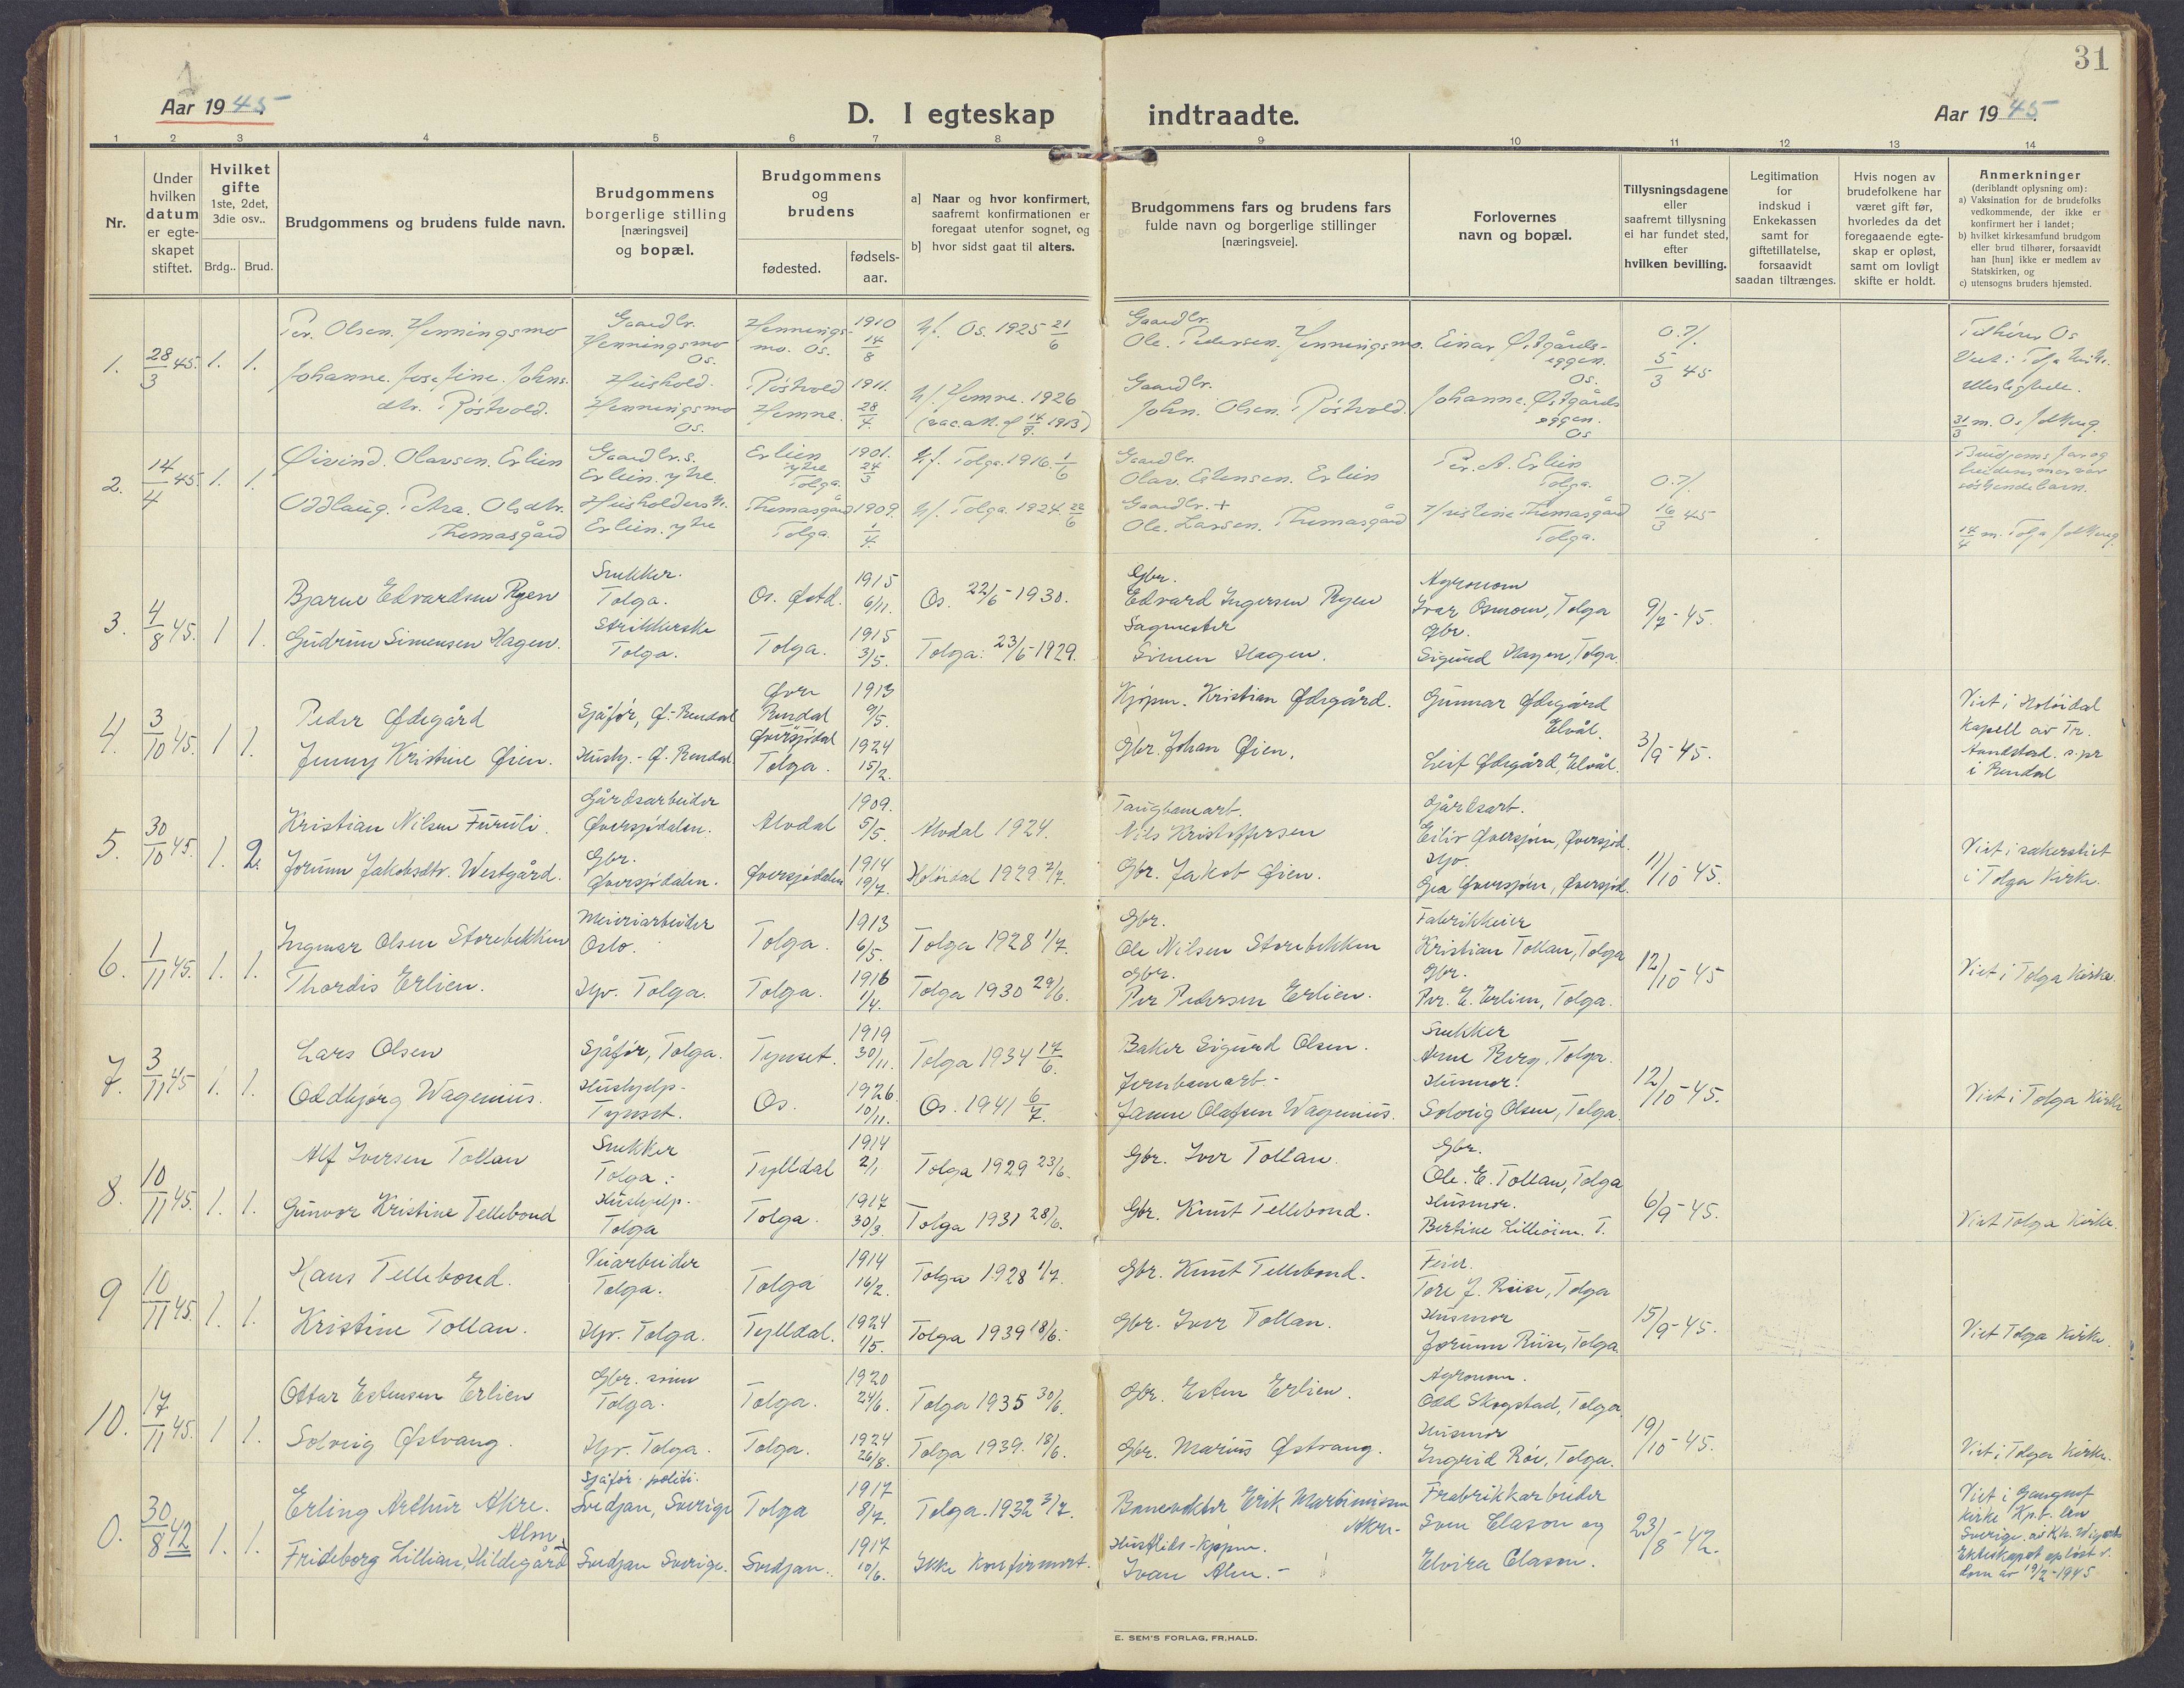 31
Aar 1945
D. I egteskap
indtraadte.
Aar 1945
1 2 3 4 5 6 7 8 9 10 11 12 13 14
Nr.
Under hvilken datum er egteskapet stiftet.
Hvilket gifte 1ste, 2det, 3die osv..
Brdg.. Brud.
Brudgommens og brudens fulde navn.
Brudgommens borgerlige stilling [næringsvei] og bopæl.
Brudgommens og brudens
fødested.
fødsels-aar.
a] Naar og hvor konfirmert, saafremt konfirmationen er foregaat utenfor sognet, og
b] hvor sidst gaat til alters.
Brudgommens fars og brudens fars fulde navn og borgerlige stillinger [næringsveie].
Forlovernes navn og bopæl.
Tillysningsdagene eller saafremt tillysning ei har fundet sted, efter hvilken bevilling.
Legitimation for indskud i Enkekassen samt for giftetillatelse, forsaavidt saadan tiltrænges.
Hvis nogen av brudefolkene har været gift før, hvorledes da det foregaaende egteskap er opløst, samt om lovligt skifte er holdt.
Anmerkninger (deriblandt oplysning om):
a) Vaksination for de brudefolks vedkommende, der ikke er konfirmert her i landet;
b) hvilket kirkesamfund brudgom eller brud tilhører, forsaavidt han [hun] ikke er medlem av Statskirken, og
c) utensogns bruders hjemsted.
1. 28/3 45. 1. 1.
Per. Olsen. Henningsmo
Gaardbr. Henningsmo Os.
Henningsmo. Os.
1910 14/8
Kf. Os. 1925 21/6
Gaardbr. Ole. Pedersen. Henningsmo.
Einar Østgårdseggen. Os.
5/3 45
Johanne. Josefine. Johns. dtr. Røstvold.
Henningsmo Os.
Røstvold Hemne.
1911. 28/7
Kf. Hemne. 1926
Gaardbr. John. Olsen. Røstvold.
Johanne. Østgårdseggen. Os
Tilhører Os
31/3 m. Os
2. 14/4 45 1. 1.
Øivind. Olavsen. Erlien
Gaardbr.s. Erlien. ytre.
Erlien ytre Tolga.
1901. 24/3
Kf. Tolga. 1916. 1/6
Gaardbr. Olav. Estensen. Erlien
Per. A. Erlien Tolga.
16/3 45
Oddlaug. Petra. Olsdtr. Thomasgård
Erlien. ytre
Thomasgård Tolga.
1909. 1/4
Kf. Tolga. 1924. 22/6
Gaardbr. + Ole. Larsen. Thomasgård
Thomasgård Tolga.
søskendebarn.
14/4 m. Tolga
3. 4/8 45. 1 1.
Bjarne Edvardsen Ryen
Snekker. Tolga.
Os. Østd.
1915 6/11.
Os. 22/6 - 1930.
Gbr. Edvard Ingersen Ryen
Agronom Ivar Osmoen, Tolga
9/7 - 45.
Gudrun Simensen Hagen.
Strikkerske Tolga.
Tolga.
1915 3/5.
Tolga: 23/6 - 1929.
Sagmester Simen Hagen.
Gbr. Sigurd Hagen, Tolga.
4. 3/10 45. 1 1.
Peder Ødegård
Sjåfør, Ø. Rendal
Øvre Rendal
1913 9/5.
Kjøpm. Kristian Ødegård.
Gunnar Ødegård Elvål.
3/9 - 45.
Jenny Kristine Øien.
Hushj. - Ø. Rendal
Øversjødal Tolga.
1924 15/2.
Gbr. Johan Øien.
Leif Ødegård, Elvål.
Viet i Holøidal Kapell av Tr. Sandstad. s.pr i Rendal
5. 30/10 45. 1. 2.
Kristian Nilsen Furuli.
Gårdsarbeider Øversjødalen.
Alvdal
1909. 5/5.
Alvdal 1924.
Nils Kristoffersen
Gårdsarb. Eiliv Øversjøen, Øversjød.
11/10 - 45.
Jorunn Jakobsdtr. Westgård.
Gbr. Øversjødalen.
Øversjødalen
1914 19/7.
Holøidal 1929 7/7.
Gbr. Jakob Øien.
Hv. Gea Øversjøen, Øversjød.
Viet i sakerstiet i Tolga Kirke.
6. 1/11 45. 1. 1.
Ingmar Olsen Storebekken
Meieriarbeider Oslo.
Tolga.
1913 6/5.
Tolga 1928 1/7.
Gbr. Ole Nilsen Storebekken
Fabrikkeier Kristian Tollan, Tolga
12/10 - 45
Thordis Erlien.
Hv. Tolga.
Tolga.
1916 1/4.
Tolga 1930 29/6.
Gbr. Per Pedersen Erlien.
Gbr. Per. E. Erlien, Tolga.
Viet i Tolga Kirke.
7. 3/11 45 1. 1.
Lars Olsen
Sjåfør, Tolga.
Tynset.
1919 30/11.
Tolga 1934 17/6.
Baker Sigurd Olsen.
Snekker Arne Berg, Tolga.
12/10 - 45.
Oddbjørg Wagenius.
Hushjelp. Tynset.
Os.
1926. 10/11.
Os. 1941 6/7.
Jernbanearb. - Janne Olafsen Wagenius.
Husmor. Solveig Olsen, Tolga.
Viet i Tolga Kirke
8. 10/11 45. 1. 1.
Alf Iversen Tollan
Snekker Tolga.
Tylldal
1914 2/1
Tolga 1929 23/6.
Gbr. Iver Tollan.
Gbr. Ole. E. Tollan, Tolga
6/9 - 45.
Gunvor Kristine Tellebond
Hushjelp. Tolga
Tolga.
1917 30/3.
Tolga 1931 28/6.
Gbr. Knut Tellebond.
Husmor. Bertine Lilleøien. T.
Viet Tolga Kirke.
9 10/11 45. 1. 1.
Hans Tellebond.
Veiarbeider Tolga.
Tolga
1914 16/2.
Tolga 1928 1/7.
Gbr. Knut Tellebond.
Feier. Tore J. Riise, Tolga
15/9 - 45.
Kristine Tollan.
Hv. Tolga.
Tylldal.
1924 1/5.
Tolga 1939 18/6.
Gbr. Iver Tollan.
Husmor Jorunn Riise, Tolga.
Viet Tolga Kirke.
10. 17/11 45. 1 1.
Ottar Estensen Erlien
Gbr. sønn Tolga.
Tolga.
1920 24/6.
Tolga 1935 30/6.
Gbr. Esten Erlien.
Agronom. Odd Skogstad, Tolga
19/10 - 45.
Solveig Østvang.
Hv. Tolga.
Tolga.
1924 26/8.
Tolga 1939. 18/6.
Gbr. Marius Østvang.
Husmor Ingrid Røe, Tolga.
Viet i Tolga Kirke.
0. 30/8 42 1. 1.
Erling Arthur Akre.
Sjåfør. politi. Svedjan, Sverige
Tolga
1917 8/7.
Tolga. 1932 3/7.
Banevokter Erik Martinussen Akre-
Frabrikkarbeider Sven Elason og
23/8 - 42.
Frideborg Lillian, Hildegård Alm
Svedjan Sverige.
Svedjan.
1917 10/6.
Ikke Konfirmert.
Ivan Alm. -
Elvira Elason.
Viet i
kirke
Sverige. av
Ekteskapet opløst v. dom av 19/2 - 1945
E. SEM'S FORLAG, FR.HALD.